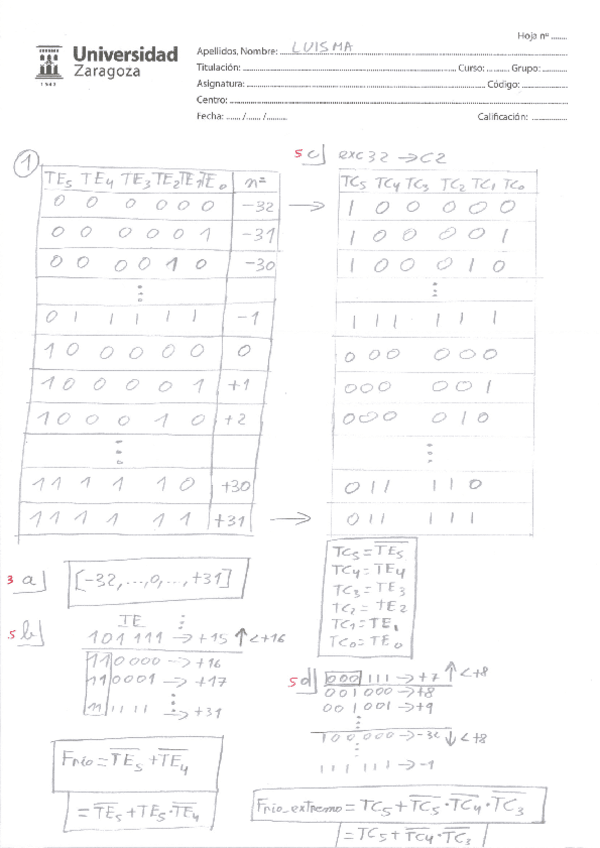 Hoja nº ........
Universidad
Zaragoza
1542
Apellidos, Nombre: LUISMA
Titulación: ........ Curso: ........ Grupo: ........
Asignatura: ........ Código: ........
Centro: ........
Fecha: ....... /....... /.........
Calificación: ..............
1
TE5 TE4 TE3 TE2 TE1 TE0 nº
0 0 0 0 0 0 -32 →
0 0 0 0 0 1 -31
0 0 0 0 1 0 -30
⋮
0 1 1 1 1 1 -1
1 0 0 0 0 0 0
1 0 0 0 0 1 +1
1 0 0 0 1 0 +2
⋮
1 1 1 1 1 0 +30
1 1 1 1 1 1 +31 →
5 c) exc32 → C2
TC5 TC4 TC3 TC2 TC1 TC0
1 0 0 0 0 0
1 0 0 0 0 1
1 0 0 0 1 0
⋮
1 1 1 1 1 1
0 0 0 0 0 0
0 0 0 0 0 1
0 0 0 0 1 0
⋮
0 1 1 1 1 0
0 1 1 1 1 1
TC5 = T̅E̅5̅
TC4 = TE4
TC3 = TE3
TC2 = TE2
TC1 = TE1
TC0 = TE0
3 a) [-32, ..., 0, ..., +31]
5 b) TE ⋮
101 111 → +15 ↑ <+16
110000 → +16
110001 → +17
⋮
111111 → +31
Frio = T̅E̅5̅ + T̅E̅4̅
= T̅E̅5̅ + TE5·T̅E̅4̅
5 d) 000 111 → +7 ↑ <+8
001 000 → +8
001 001 → +9
⋮
100 000 → -32 ↓ <+8
⋮
111 111 → -1
Frio_extremo = TC5 + T̅C̅5̅·T̅C̅4̅·T̅C̅3̅
= TC5 + T̅C̅4̅·T̅C̅3̅